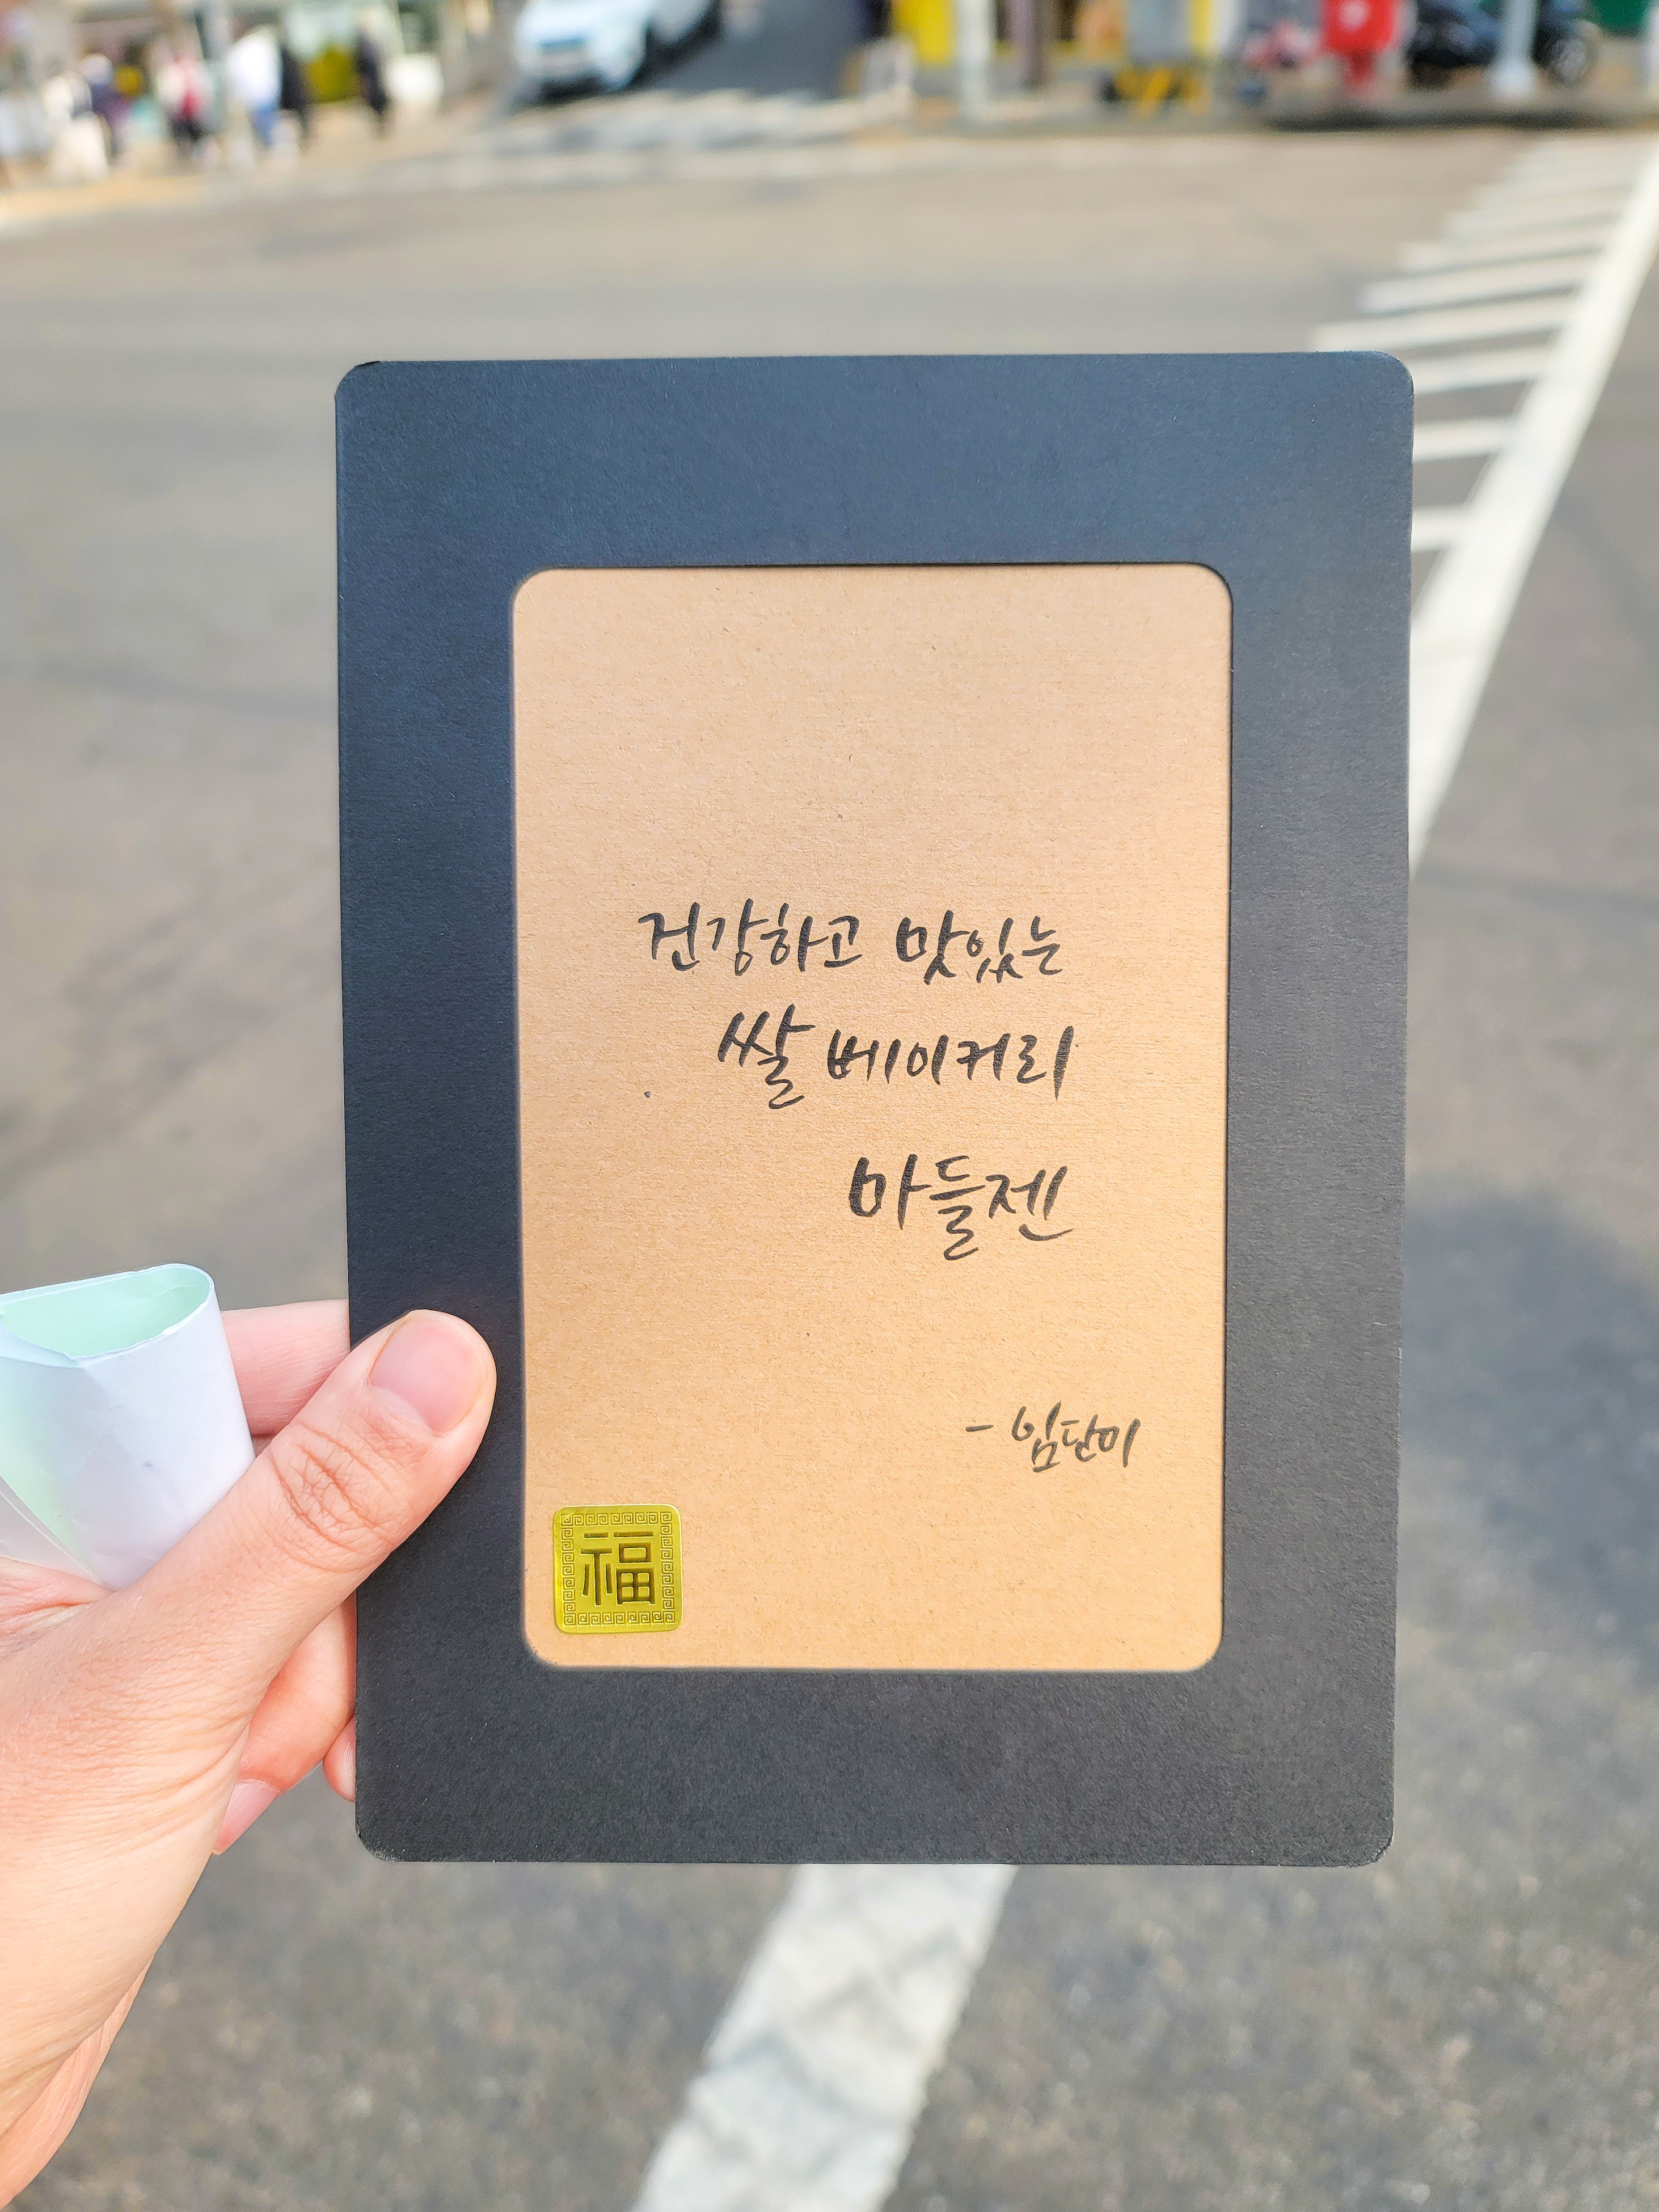 건강하고 맛있는
쌀 베이커리
마들젠
- 임단미
福